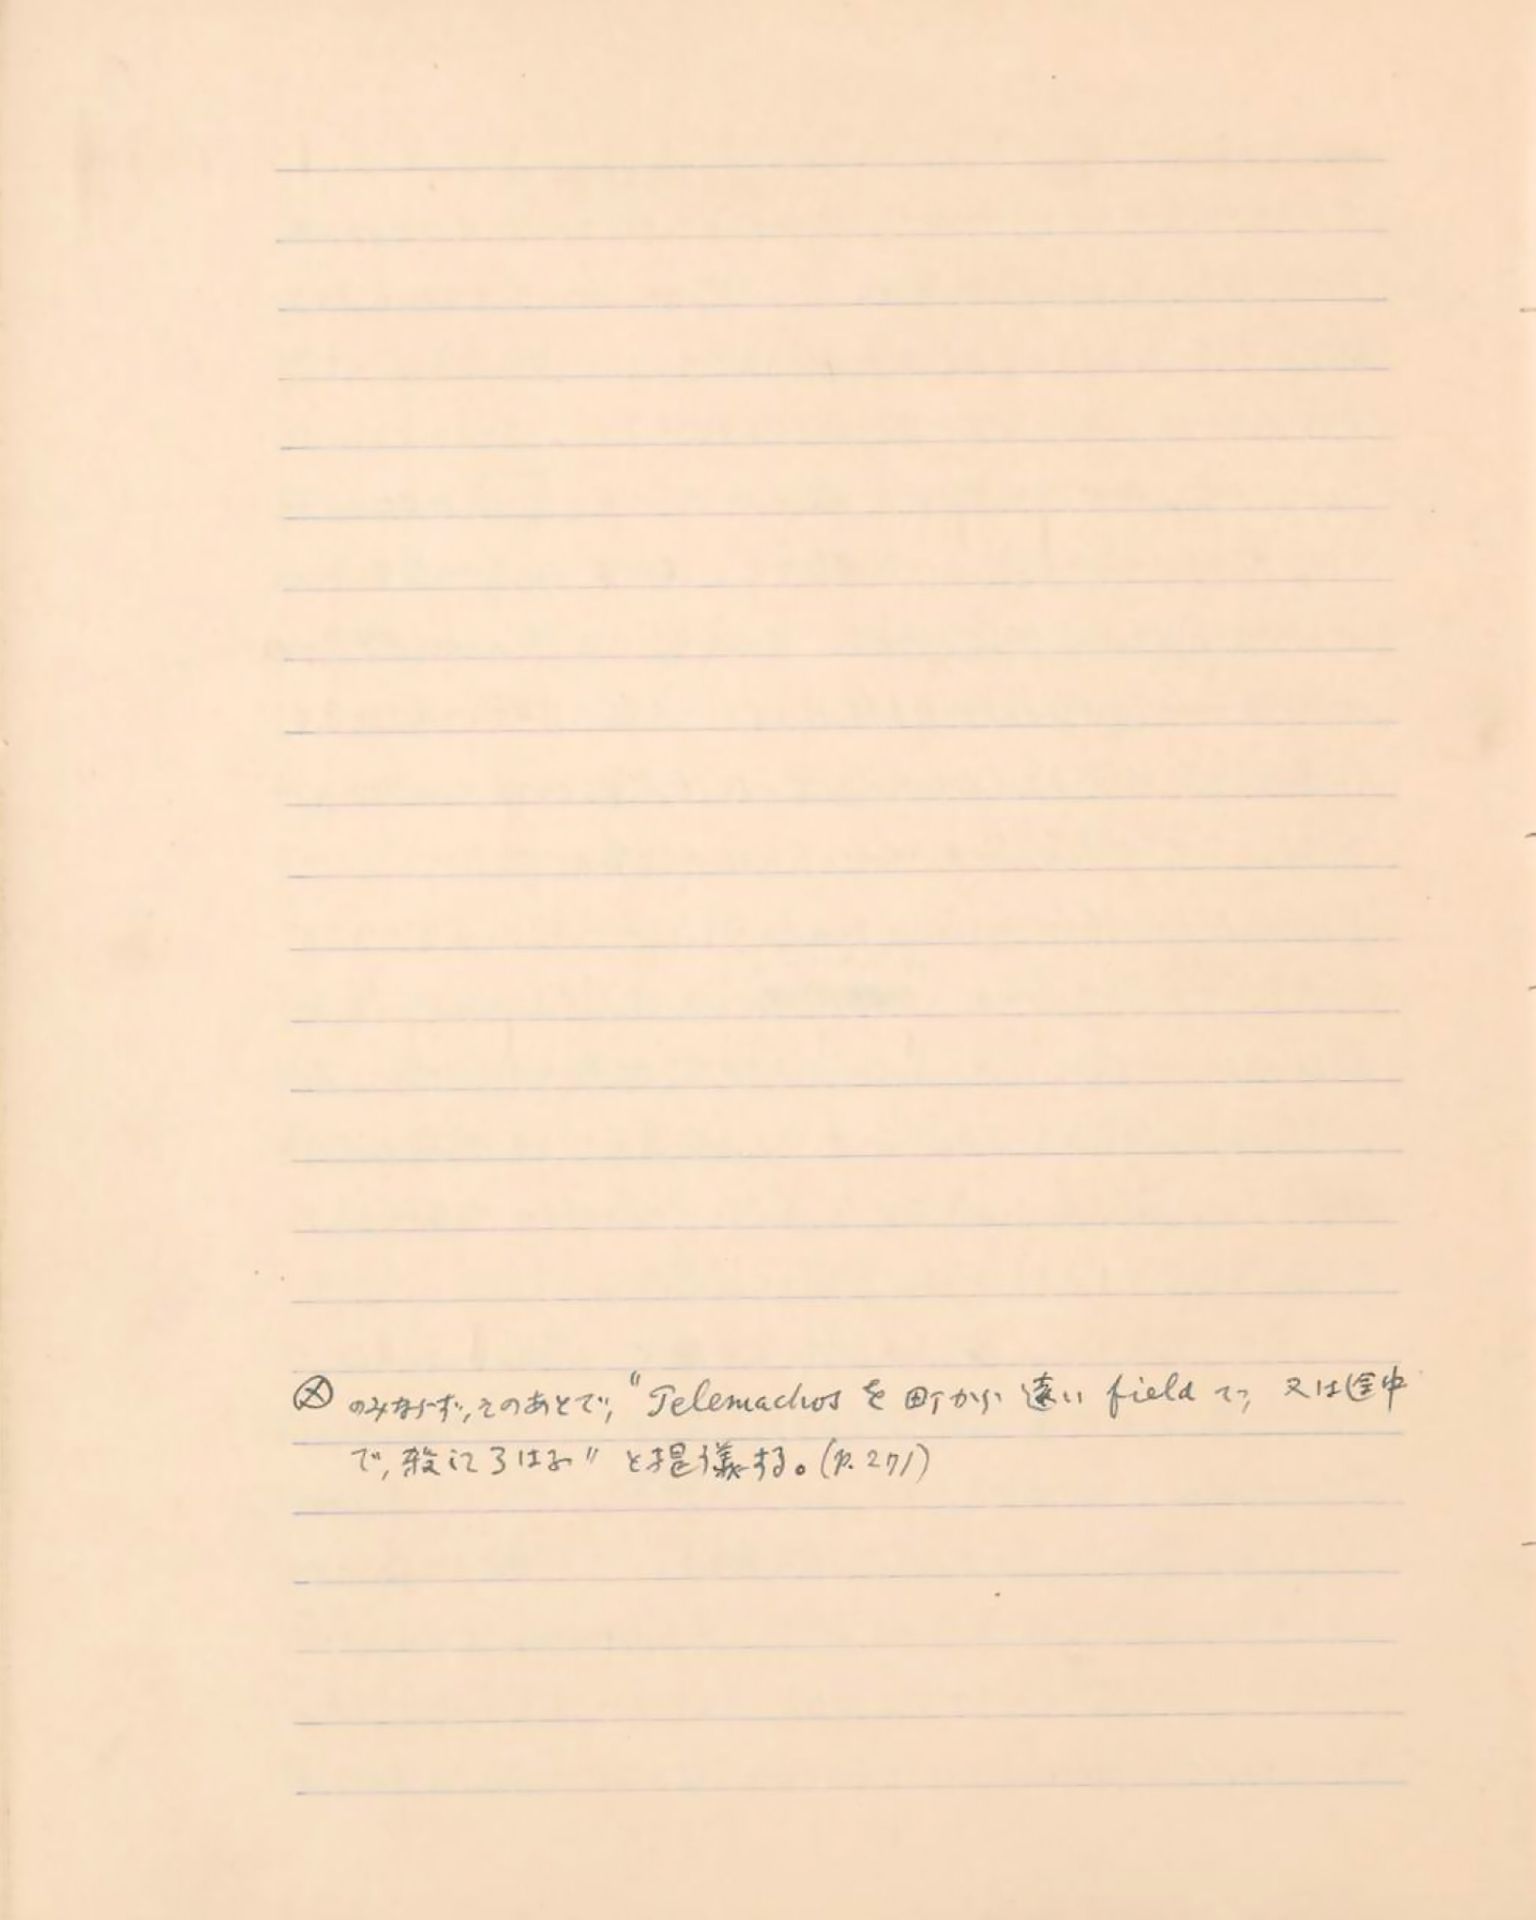 ⊗ のみならず、そのあとで、"Telemachosを町から遠いfieldで、又は途中
で、殺" と提議する。(p.271)